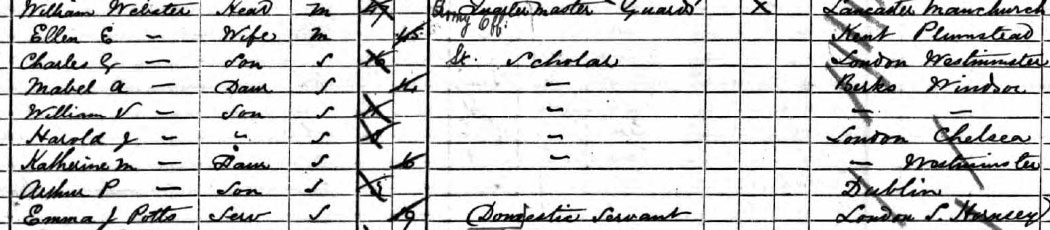 William Webster Head M 47 Quartermaster Guards X Lancaster Manchurch
Army Off:
Ellen E — Wife M 45 Kent Plumstead
Charles G — Son S St. Scholar London Westminster
Mabel A — Daur S 14 " Berks Windsor
William V — Son S " — —
Harold J — " S " London Chelsea
Katherine M — Daur S " — Westminster
Arthur P — Son S Dublin
Emma J Potts Serv S 19 Domestic Servant London S. Hornsey